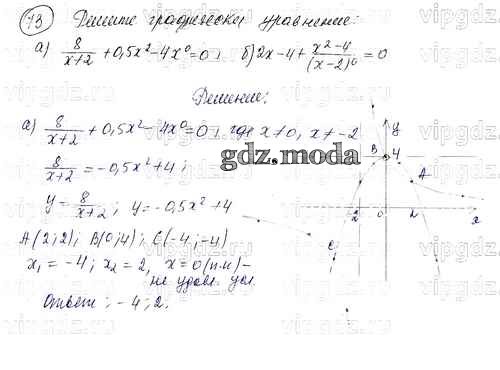 73 Решите графически уравнение:
а) 8/(x+2) + 0,5x² - 4x⁰ = 0; б) 2x - 4 + (x²-4)/(x-2)⁰ = 0
Решение:
а) 8/(x+2) + 0,5x² - 4x⁰ = 0; где x ≠ 0, x ≠ -2
8/(x+2) = -0,5x² + 4;
y = 8/(x+2); y = -0,5x² + 4
A(2;2); B(0;4); C(-4;-4)
x₁ = -4; x₂ = 2, x = 0 (п.к) -
не удовл. усл.
Ответ: -4; 2.
y
B 4
A
-2 0 2 x
C
gdz.moda
vipgdz.ru